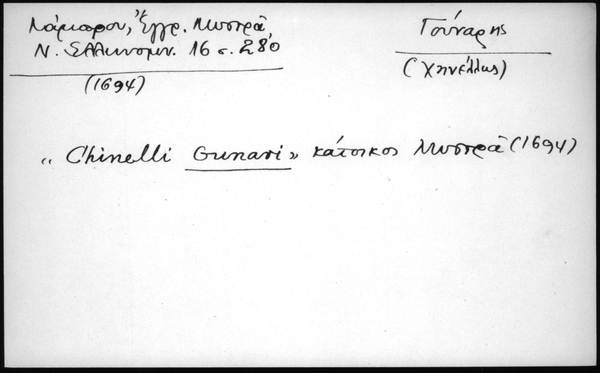 Λάμπρου, Ἔγγρ. Μυστρᾶ,
Ν. Ἑλληνομν. 16 σ. 280
(1694)
Γούναρης
(Χηνέλλως)
« Chinelli Gunari » κάτοικος Μυστρᾶ (1694)